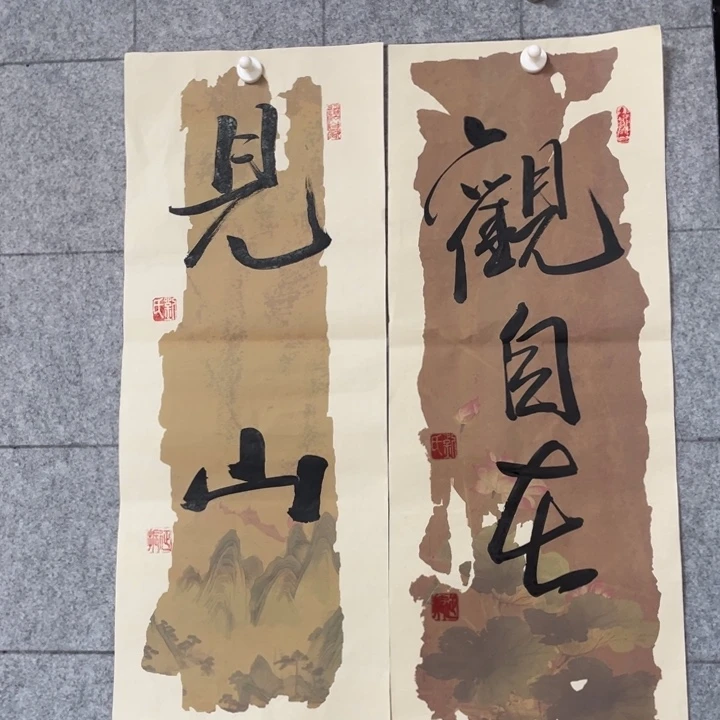 見山
觀自在